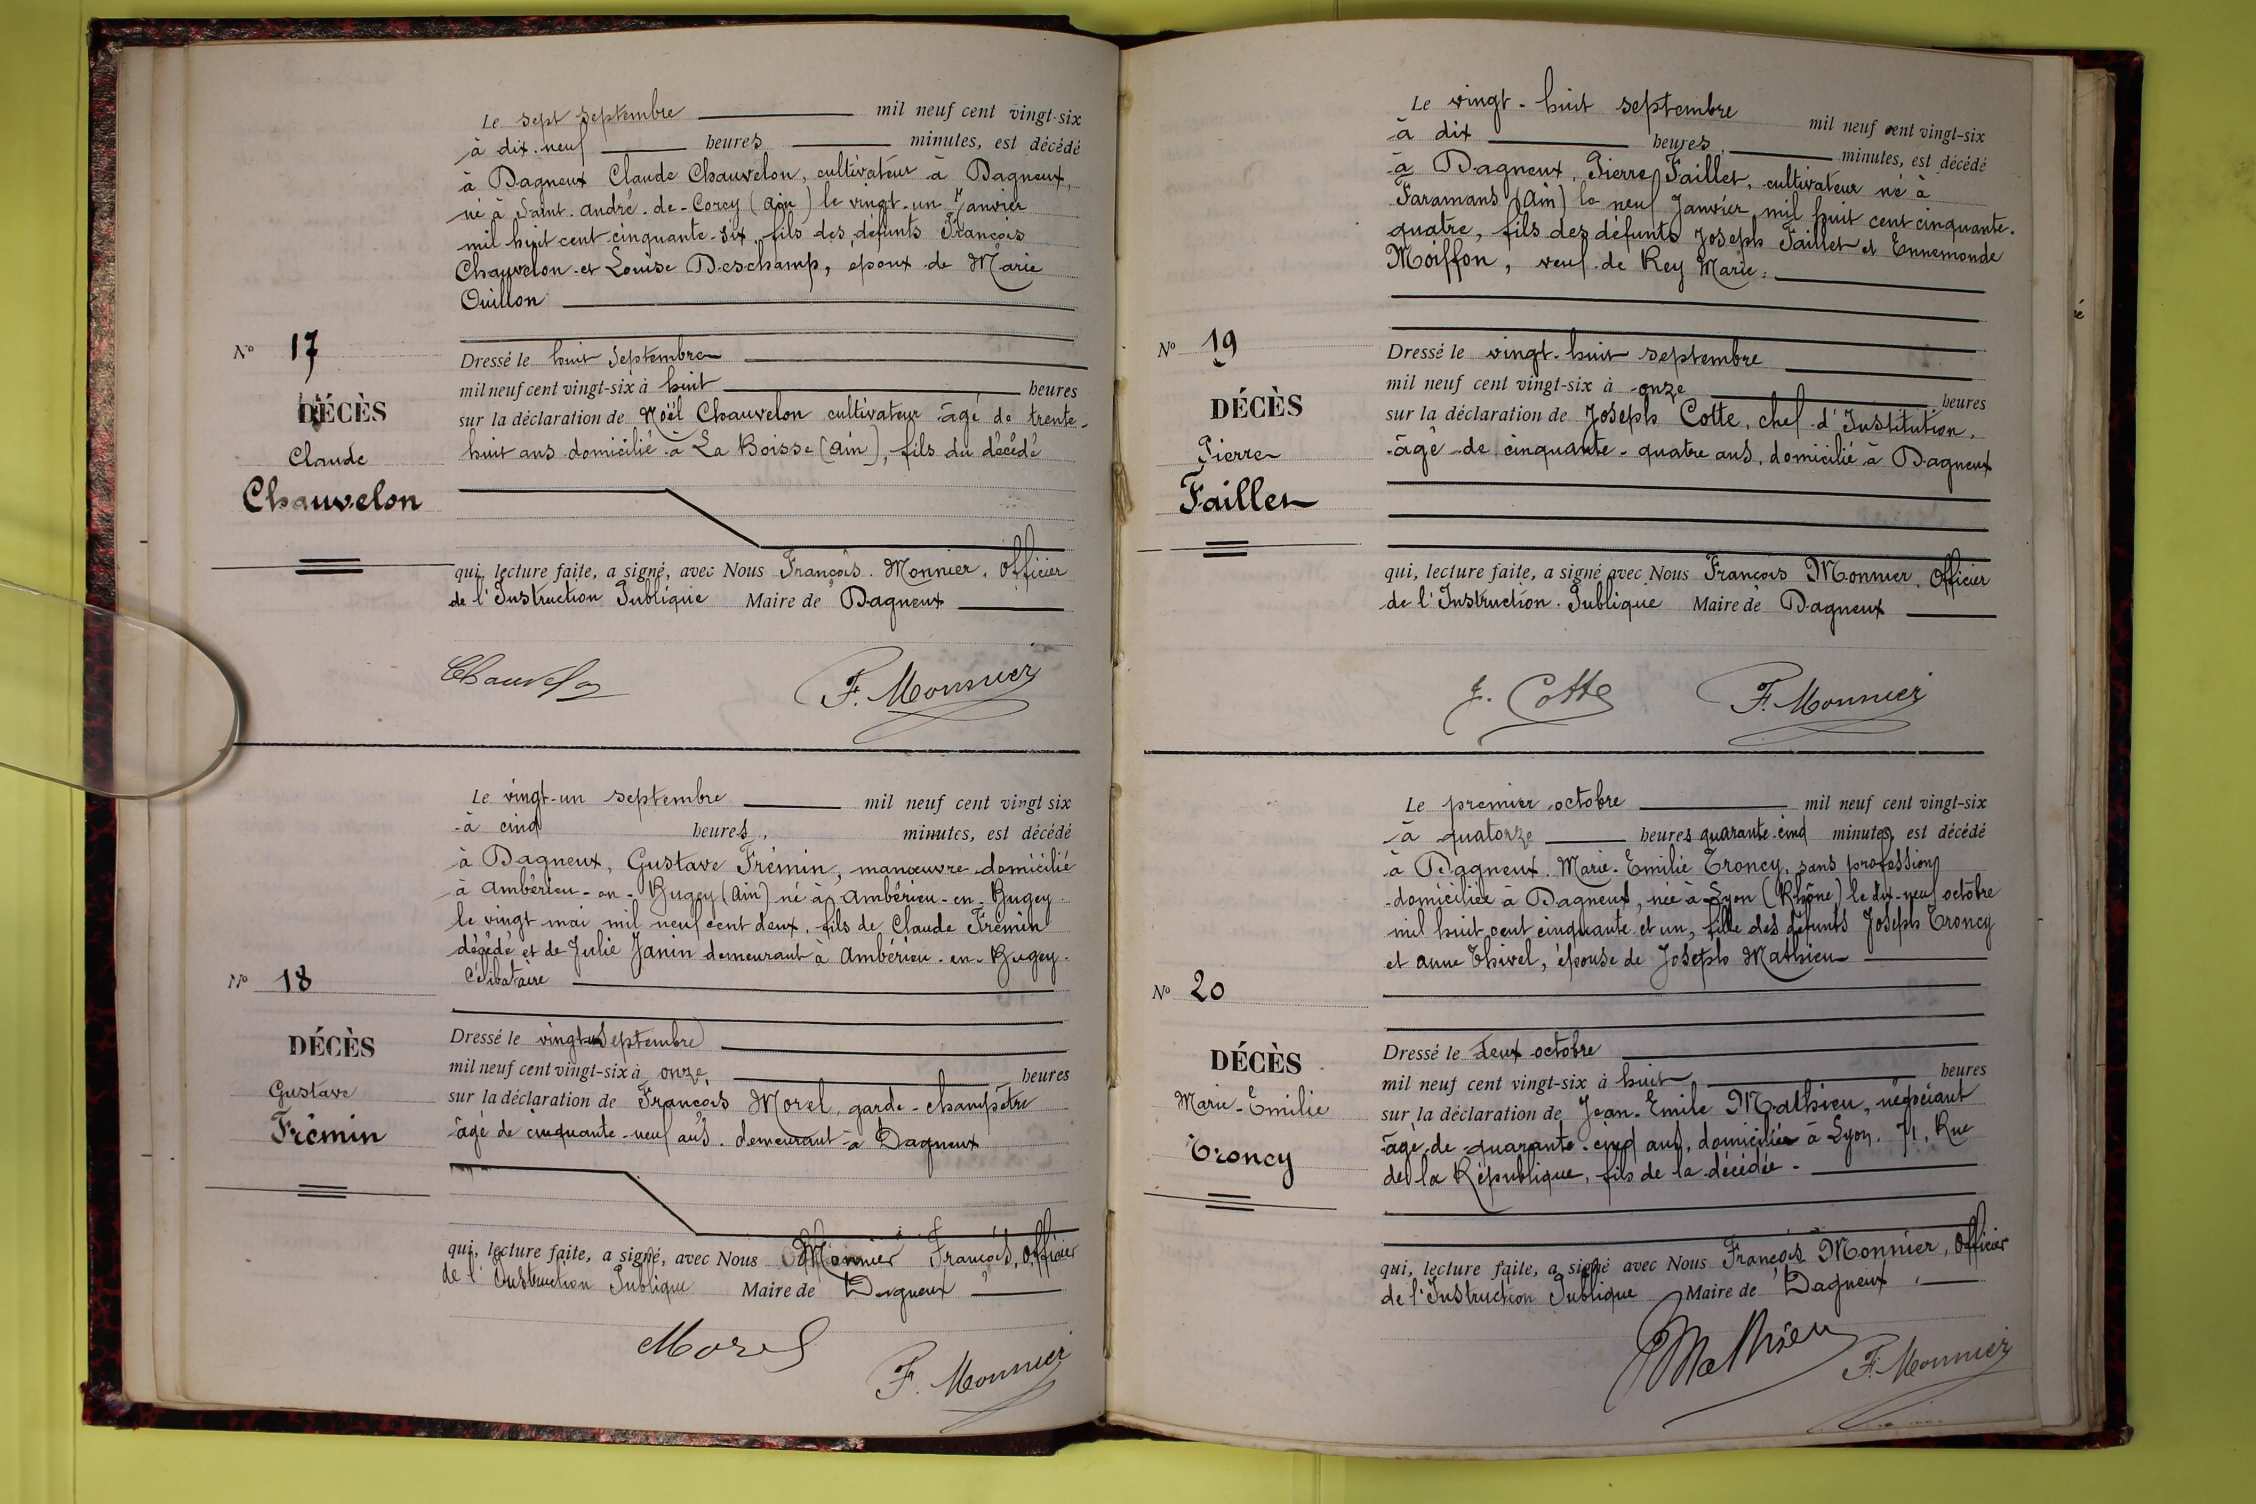 Le sept septembre mil neuf cent vingt-six
à dix-neuf heures minutes, est décédé
à Dagneux Claude Chauvelon, cultivateur à Dagneux,
né à Saint-André-de-Corcy (Ain) le vingt-un Janvier
mil huit cent cinquante-six, fils des défunts François
Chauvelon et Louise Deschamp, époux de Marie
Ouillon
N° 17
DÉCÈS
Claude
Chauvelon
Dressé le huit Septembre
mil neuf cent vingt-six à huit heures
sur la déclaration de Noël Chauvelon cultivateur âgé de trente-
huit ans domicilié à La Boisse (Ain), fils du décédé
qui, lecture faite, a signé, avec Nous François Monnier, Officier
de l'Instruction Publique Maire de Dagneux
Chauvelon F. Monnier
Le vingt-un septembre mil neuf cent vingt six
à cinq heures, minutes, est décédé
à Dagneux, Gustave Frémin, manœuvre domicilié
à Ambérieu-en-Bugey (Ain) né à Ambérieu-en-Bugey
le vingt mai mil neuf cent deux, fils de Claude Frémin
décédé et de Julie Janin demeurant à Ambérieu-en-Bugey.
Célibataire
N° 18
DÉCÈS
Gustave
Frémin
Dressé le vingt-un Septembre
mil neuf cent vingt-six à onze heures
sur la déclaration de François Morel, garde-champêtre
âgé de cinquante-neuf ans. demeurant à Dagneux
qui, lecture faite, a signé, avec Nous Monnier François, Officier
de l'Instruction Publique Maire de Dagneux
Morel F. Monnier
Le vingt-huit septembre mil neuf cent vingt-six
à dix heures, minutes, est décédé
à Dagneux, Pierre Faillet, cultivateur né à
Faramans (Ain) le neuf Janvier mil huit cent cinquante-
quatre, fils des défunts Joseph Faillet et Ennemonde
Moiffon, veuf de Rey Marie.
N° 19
DÉCÈS
Pierre
Faillet
Dressé le vingt-huit septembre
mil neuf cent vingt-six à onze heures
sur la déclaration de Joseph Cotte, chef d'Institution,
âgé de cinquante-quatre ans, domicilié à Dagneux
qui, lecture faite, a signé avec Nous François Monnier, Officier
de l'Instruction Publique Maire de Dagneux
J. Cotte F. Monnier
Le premier octobre mil neuf cent vingt-six
à quatorze heures quarante-cinq minutes, est décédé
à Dagneux, Marie-Emilie Troncy, sans profession
domiciliée à Dagneux, née à Lyon (Rhône) le dix-neuf octobre
mil huit cent cinquante et un, fille des défunts Joseph Troncy
et Anne Thivel, épouse de Joseph Mathieu
N° 20
DÉCÈS
Marie-Emilie
Troncy
Dressé le deux octobre
mil neuf cent vingt-six à huit heures
sur la déclaration de Jean-Emile Mathieu, négociant
âgé de quarante-cinq ans, domicilié à Lyon, 71, Rue
de la République, fils de la décédée.
qui, lecture faite, a signé avec Nous François Monnier, Officier
de l'Instruction Publique Maire de Dagneux
Mathieu F. Monnier